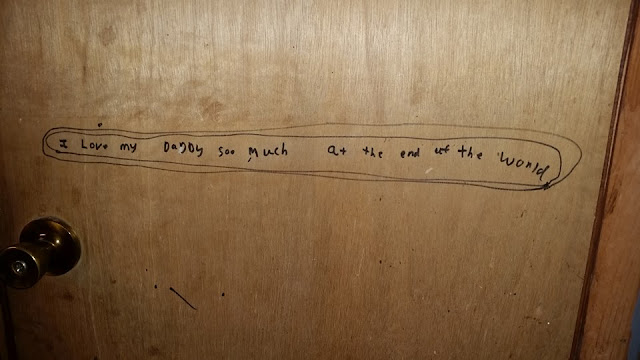 I Love my DaDDy soo Much at the end of the world